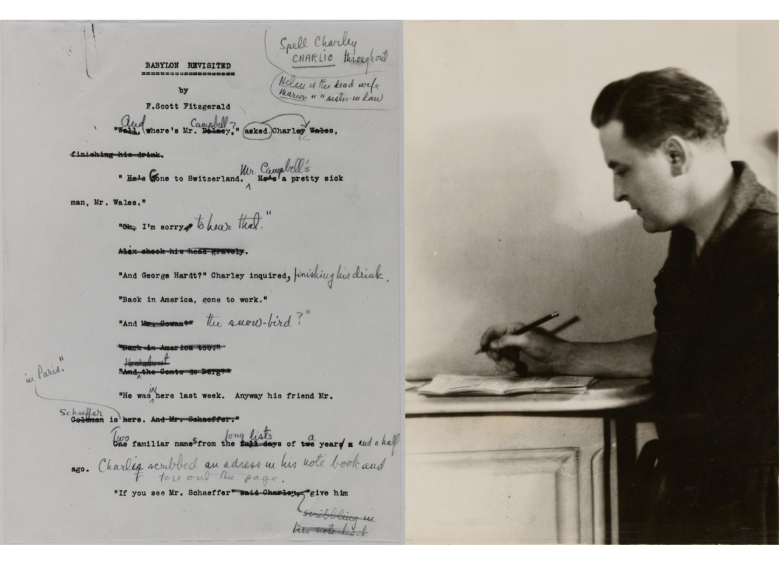 Spell Charley
CHARLIE throughout
Helen is the dead wife
Marion " " sister-in-law
BABYLON REVISITED
by
F.Scott Fitzgerald
And Campbell?
"Well, where's Mr. Delney," asked Charley Wales,
finishing his drink.
Mr. Campbell's
" He's Gone to Switzerland. He's a pretty sick
man, Mr. Wales."
"Oh, I'm sorry to hear that."
Alix shook his head gravely.
"And George Hardt?" Charley inquired, finishing his drink.
"Back in America, gone to work."
"And the snow-bird?"
"Back in America too."
"And the Conte de Burg?"
in
"He was here last week. Anyway his friend Mr.
in Paris."
Schaeffer
is here. And Mr. Schaeffer."
Two long lists a
One familiar names from the full days of two years and a half
ago. Charlie scribbed an adress in his note book and
tore out the page.
"If you see Mr. Schaeffer" said Charley, "give him
scribbling in
his note book